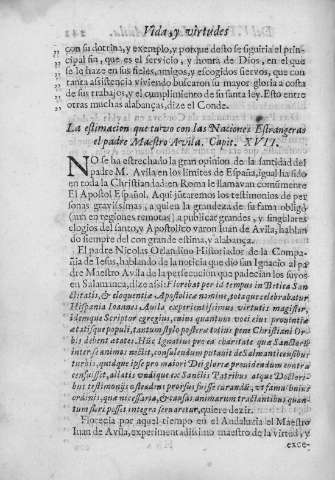 Vida, y virtudes
con su dotrina, y exemplo, y porque desto se siguiria el prin-
cipal fin, que es el servicio, y honra de Dios, en el que
se lo haze en sus fieles, amigos, y escogidos siervos, que con
tanta assistencia viviendo buscaron su mayor gloria a costa
de sus trabajos, y el cumplimiento de su santa ley. Esto entre
otras muchas alabanças, dize el Conde.
La estimacion que tuvo con las Naciones Estrangeras
el padre Maestro Avila. Capit. XVII.
NO se ha estrechado la gran opinion de la santidad del
padre M. Avila en los limites de España, igual ha sido
en toda la Christiandad: en Roma le llamavan comũmente
El Apostol Español. Aqui jũtaremos los testimonios de per
sonas gravissimas, a quien la grandeza de su fama obligò
(aun en regiones remotas) a publicar grandes, y singulares
elogios del santo, y Apostolico varon Iuan de Avila, hablan
do siempre del con grande estima, y alabança.
El padre Nicolas Orlandino Historiador de la Compa-
ñia de Iesus, hablando de la noticia que dio san Ignacio al pa
dre Maestro Avila de la persecucion que padecian los suyos
en Salamanca, dize assi: Florebat per id tempus in Betica San
ctitatis, & eloquentiæ Apostolicæ nomine, totaque celebrabatur
Hispania Ioannes Avila experientissimus virtutis magister,
idemque Scriptor egregius, cuius quantum voci eius provintiæ
ætatisque populi, tantum stylo posteræ totius pene Christiani Or-
bis debent ætates. Huic Ignatius pro ea charitate quæ Sanctos
inter se animos nectit, consulendum putavit de Salmanticensibus
turbis, quidque ipse pro maiori Dei gloria providendum contra
censuisset, allatis eruditeque ex Sanctis Patribus atque Doctori-
bus testimonijs ostendens prorsus fuisse
quæ necessaria, & causas animarum tractantibus quan-
tum fieri posset integra servaretur, quiere dezir.
Florecia por aquel tiempo en el Andaluzia el Maestro
Iuan de Avila, experimentadissimo maestro de la virtud, y
exce-